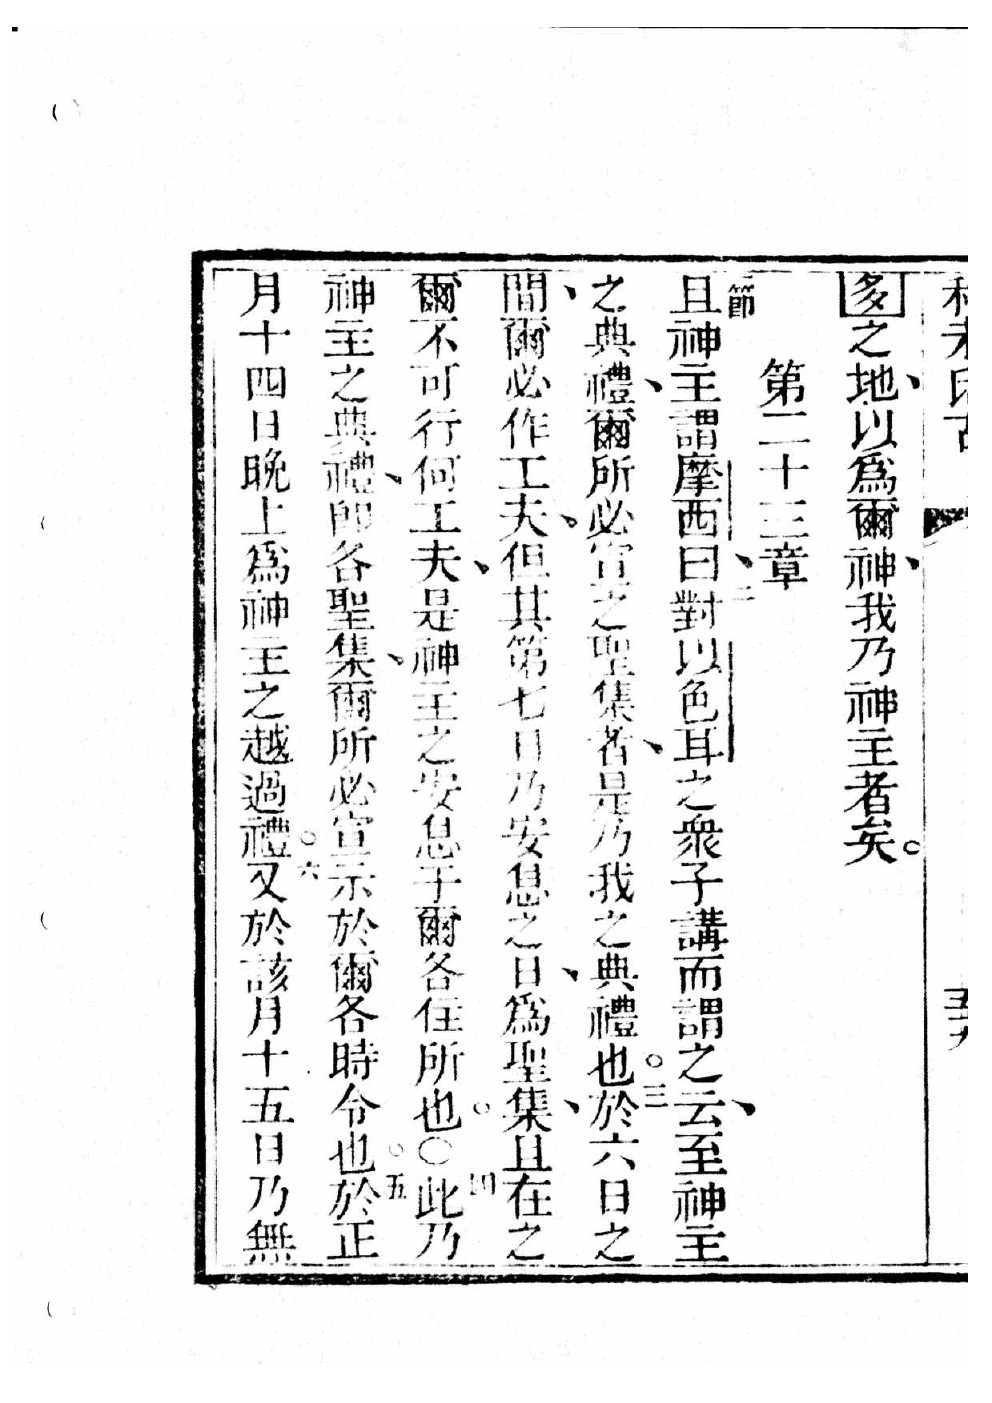 多之地以爲爾神我乃神主者矣。
第二十三章
節
且神主謂摩西曰二對以色耳之衆子講而謂之云至神主
之典禮爾所必宣之聖集者是乃我之典禮也。三於六日之
間爾必作工夫但其第七日乃安息之日爲聖集且在之
爾不可行何工夫是神主之安息于爾各住所也。○四此乃
神主之典禮卽各聖集爾所必宣示於爾各時令也。五於正
月十四日晚上爲神主之越過禮。六又於該月十五日乃無